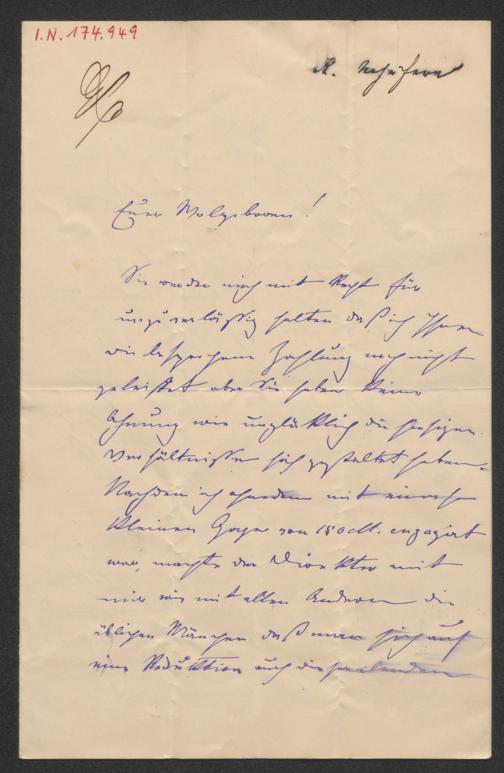 I.N. 174.949
Euer Wolgeboren!
Sie werden mich mit Recht für
unzuverläßig halten daß ich Ihnen
die besprochene Zahlung noch nicht
geleistet aber Sie haben keine
Ahnung wie unglücklich die hiesigen
Verhältnisse sich gestaltet haben.
Nachdem ich ohnedem mit einer
kleinen Gage von 150 M. engagirt
war, machte der Direktor mit
mir wie mit allen Anderen die
üblichen Mänchen daß man sich auf
eine Reduktion auch der